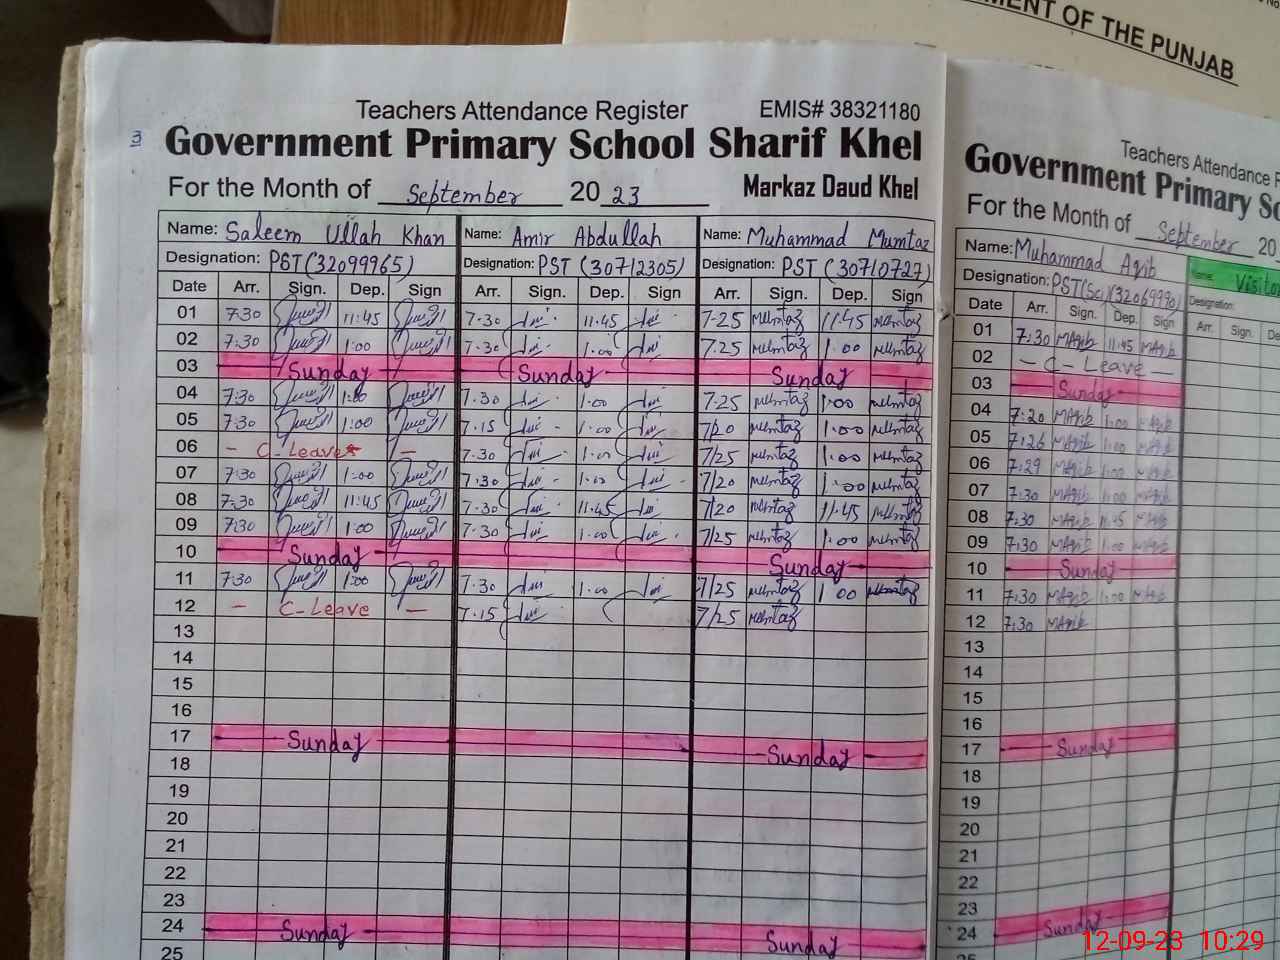 MENT OF THE PUNJAB
3
Teachers Attendance Register EMIS# 38321180
Government Primary School Sharif Khel
For the Month of September 20 23 Markaz Daud Khel
Name: Saleem Ullah Khan Name: Amir Abdullah Name: Muhammad Mumtaz
Designation: PST (32099965) Designation: PST (30712305) Designation: PST (30710727)
Date Arr. Sign. Dep. Sign Arr. Sign. Dep. Sign Arr. Sign. Dep. Sign
01 7:30 11:45 7.30 11.45 7.25 Mumtaz 11.45 Mumtaz
02 7:30 1:00 7.30 1.00 7.25 Mumtaz 1.00 Mumtaz
03 Sunday Sunday Sunday
04 7:30 1:00 7.30 1.00 7.25 Mumtaz 1.00 Mumtaz
05 7:30 1:00 7.15 1.00 7/20 Mumtaz 1.00 Mumtaz
06 - C-Leave - 7.30 1.00 7/25 Mumtaz 1.00 Mumtaz
07 7:30 1:00 7.30 1.00 7/20 Mumtaz 1.00 Mumtaz
08 7:30 11:45 7.30 11.45 7/20 Mumtaz 11.45 Mumtaz
09 7:30 1:00 7.30 1.00 7/25 Mumtaz 1.00 Mumtaz
10 Sunday Sunday
11 7:30 1:00 7.30 1.00 7/25 Mumtaz 1.00 Mumtaz
12 - C-Leave - 7.15 7/25 Mumtaz
13
14
15
16
17 Sunday Sunday
18
19
20
21
22
23
24 Sunday Sunday
25
Teachers Attendance
Government Primary
For the Month of September 20
Name: Muhammad Aqib Name: Visito
Designation: PST(Sci)(32069990) Designation:
Date Arr. Sign. Dep. Sign Arr. Sign. De
01 7:30 MAqib 11:45 MAqib
02 - C-Leave -
03 Sunday
04 7:20 MAqib 1:00 MAqib
05 7:26 MAqib 1:00 MAqib
06 7:29 MAqib 1:00 MAqib
07 7:30 MAqib 1:00 MAqib
08 7:30 MAqib 11:45 MAqib
09 7:30 MAqib 1:00 MAqib
10 Sunday
11 7:30 MAqib 1:00 MAqib
12 7:30 MAqib
13
14
15
16
17 Sunday
18
19
20
21
22
23
24 Sunday
12-09-23 10:29